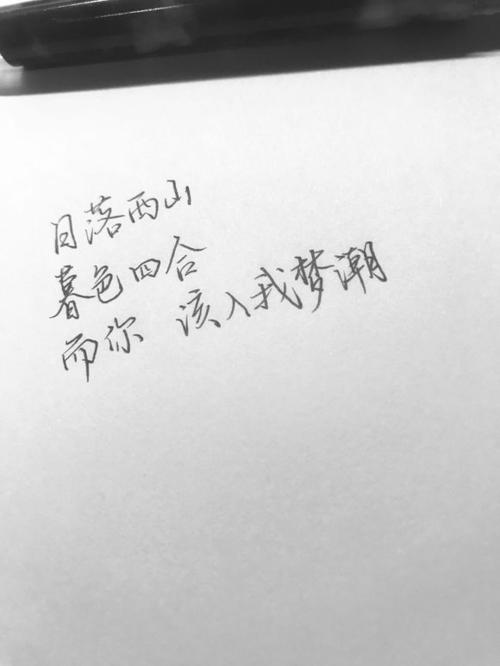 日落西山
暮色四合
而你 该入我梦潮